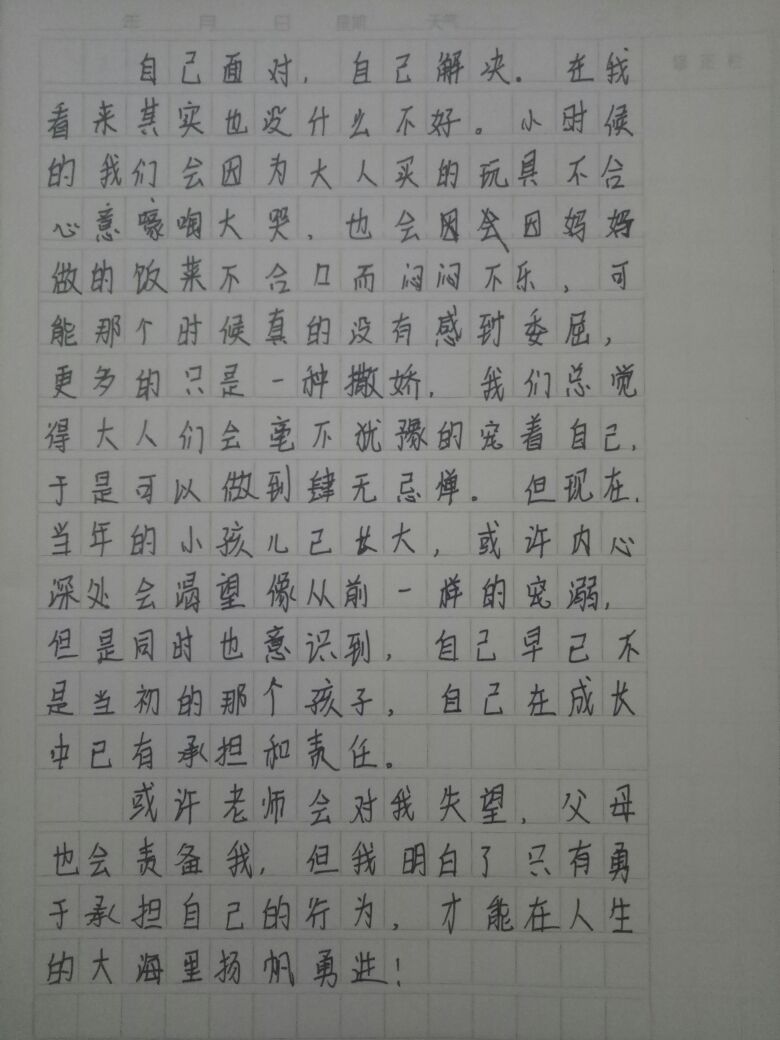 年 月 日 星期 天气
自己面对，自己解决。在我
看来其实也没什么不好。小时候
的我们会因为大人买的玩具不合
心意嚎啕大哭，也会因会因妈妈
做的饭菜不合口而闷闷不乐，可
能那个时候真的没有感到委屈，
更多的只是一种撒娇，我们总觉
得大人们会毫不犹豫的宠着自己，
于是可以做到肆无忌惮。但现在，
当年的小孩儿已长大，或许内心
深处会渴望像从前一样的宠溺，
但是同时也意识到，自己早已不
是当初的那个孩子，自己在成长
中已有承担和责任。
或许老师会对我失望，父母
也会责备我，但我明白了只有勇
于承担自己的行为，才能在人生
的大海里扬帆勇进！